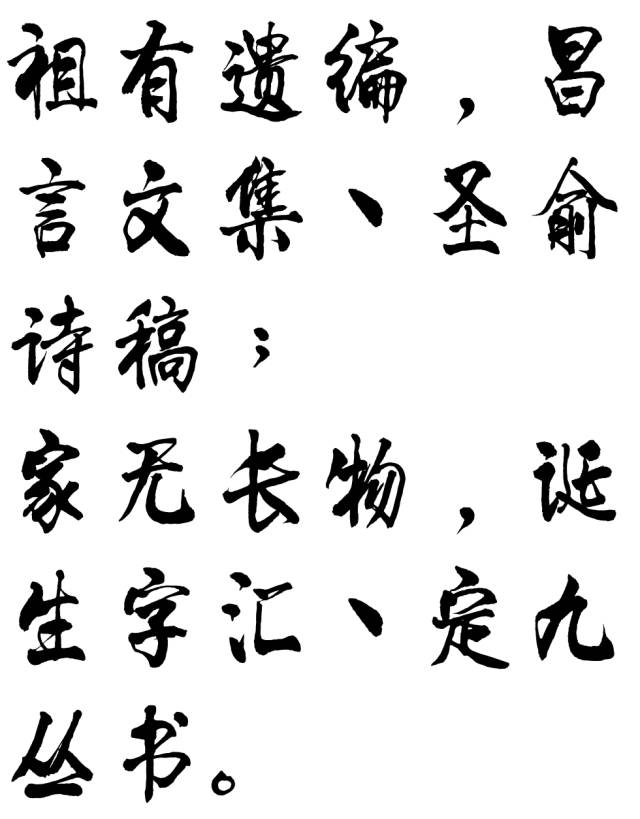 祖有遗编，昌
言文集、圣俞
诗稿；
家无长物，诞
生字汇、定九
丛书。